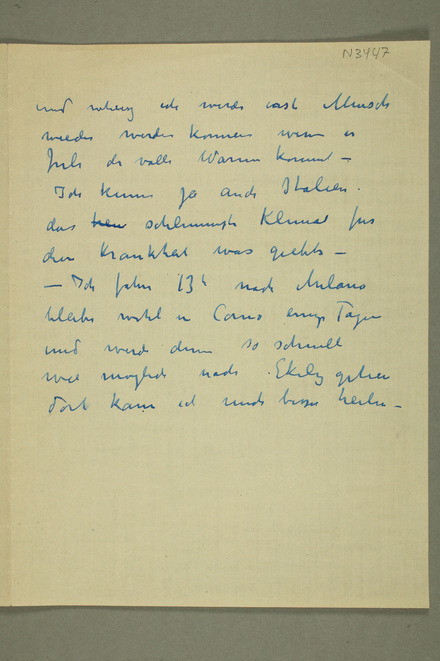 N3447
und ich werde erst Mensch
wieder werden können wenn er
Juli die volle Wärme kommt –
Ich kenne ja auch Italien.
das schlimmste Klima für
den Krankheit was giebts –
– Ich fahre 13h nach Milano
bleibe wohl in Como einige Tage
und werde dann so schnell
wie möglich nach Ekely gehen
dort kann ich mich besser heilen –